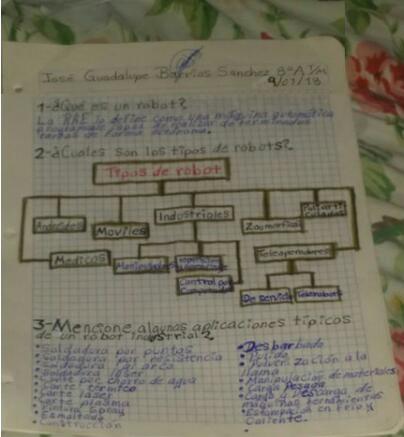 José Guadalupe Barrios Sanchez 3°A T/M
9/01/18
1-¿Qué es un robot?
La RAE lo define como una máquina automática
programable capaz de realizar determinadas
tareas de forma autónoma.
2-¿Cuales son los tipos de robots?
Tipos de robot
Androides
Moviles
Industriales
Zoomorficos
Medicos
Teleoperadores
Control por
De servicio
3-Mencione algunas aplicaciones típicos
de un robot industrial?
•Soldadura por puntos
•Soldadura por resistencia
•Soldadura al arco
•Soldadura láser
•Corte por chorro de agua
•Corte térmico
•Corte láser
•Corte plasma
•Pintura Spray
•Esmaltado
•Construcción
•Desbarbado
•Pulido
•Pulverización a la
llama
•Manipulación de materiales
•Carga pesada
•Carga y Descarga de
maquinas herramientas
•Estampación en frío y
Caliente